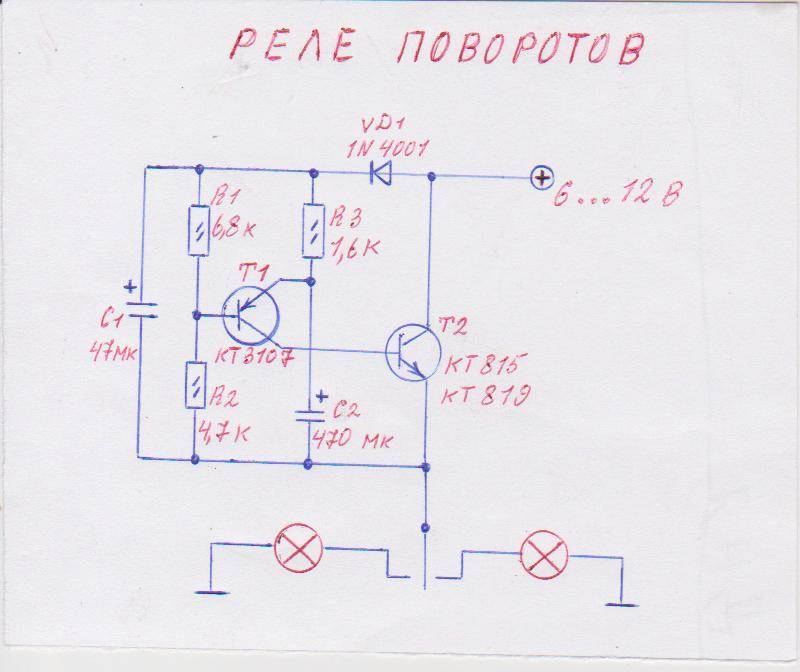 РЕЛЕ ПОВОРОТОВ
VD1
1N4001
+ 6...12 В
R1
6,8к
R3
1,6к
T1
+
C1
47мк
КТ3107
T2
КТ815
КТ819
R2
4,7к
+
C2
470 мк